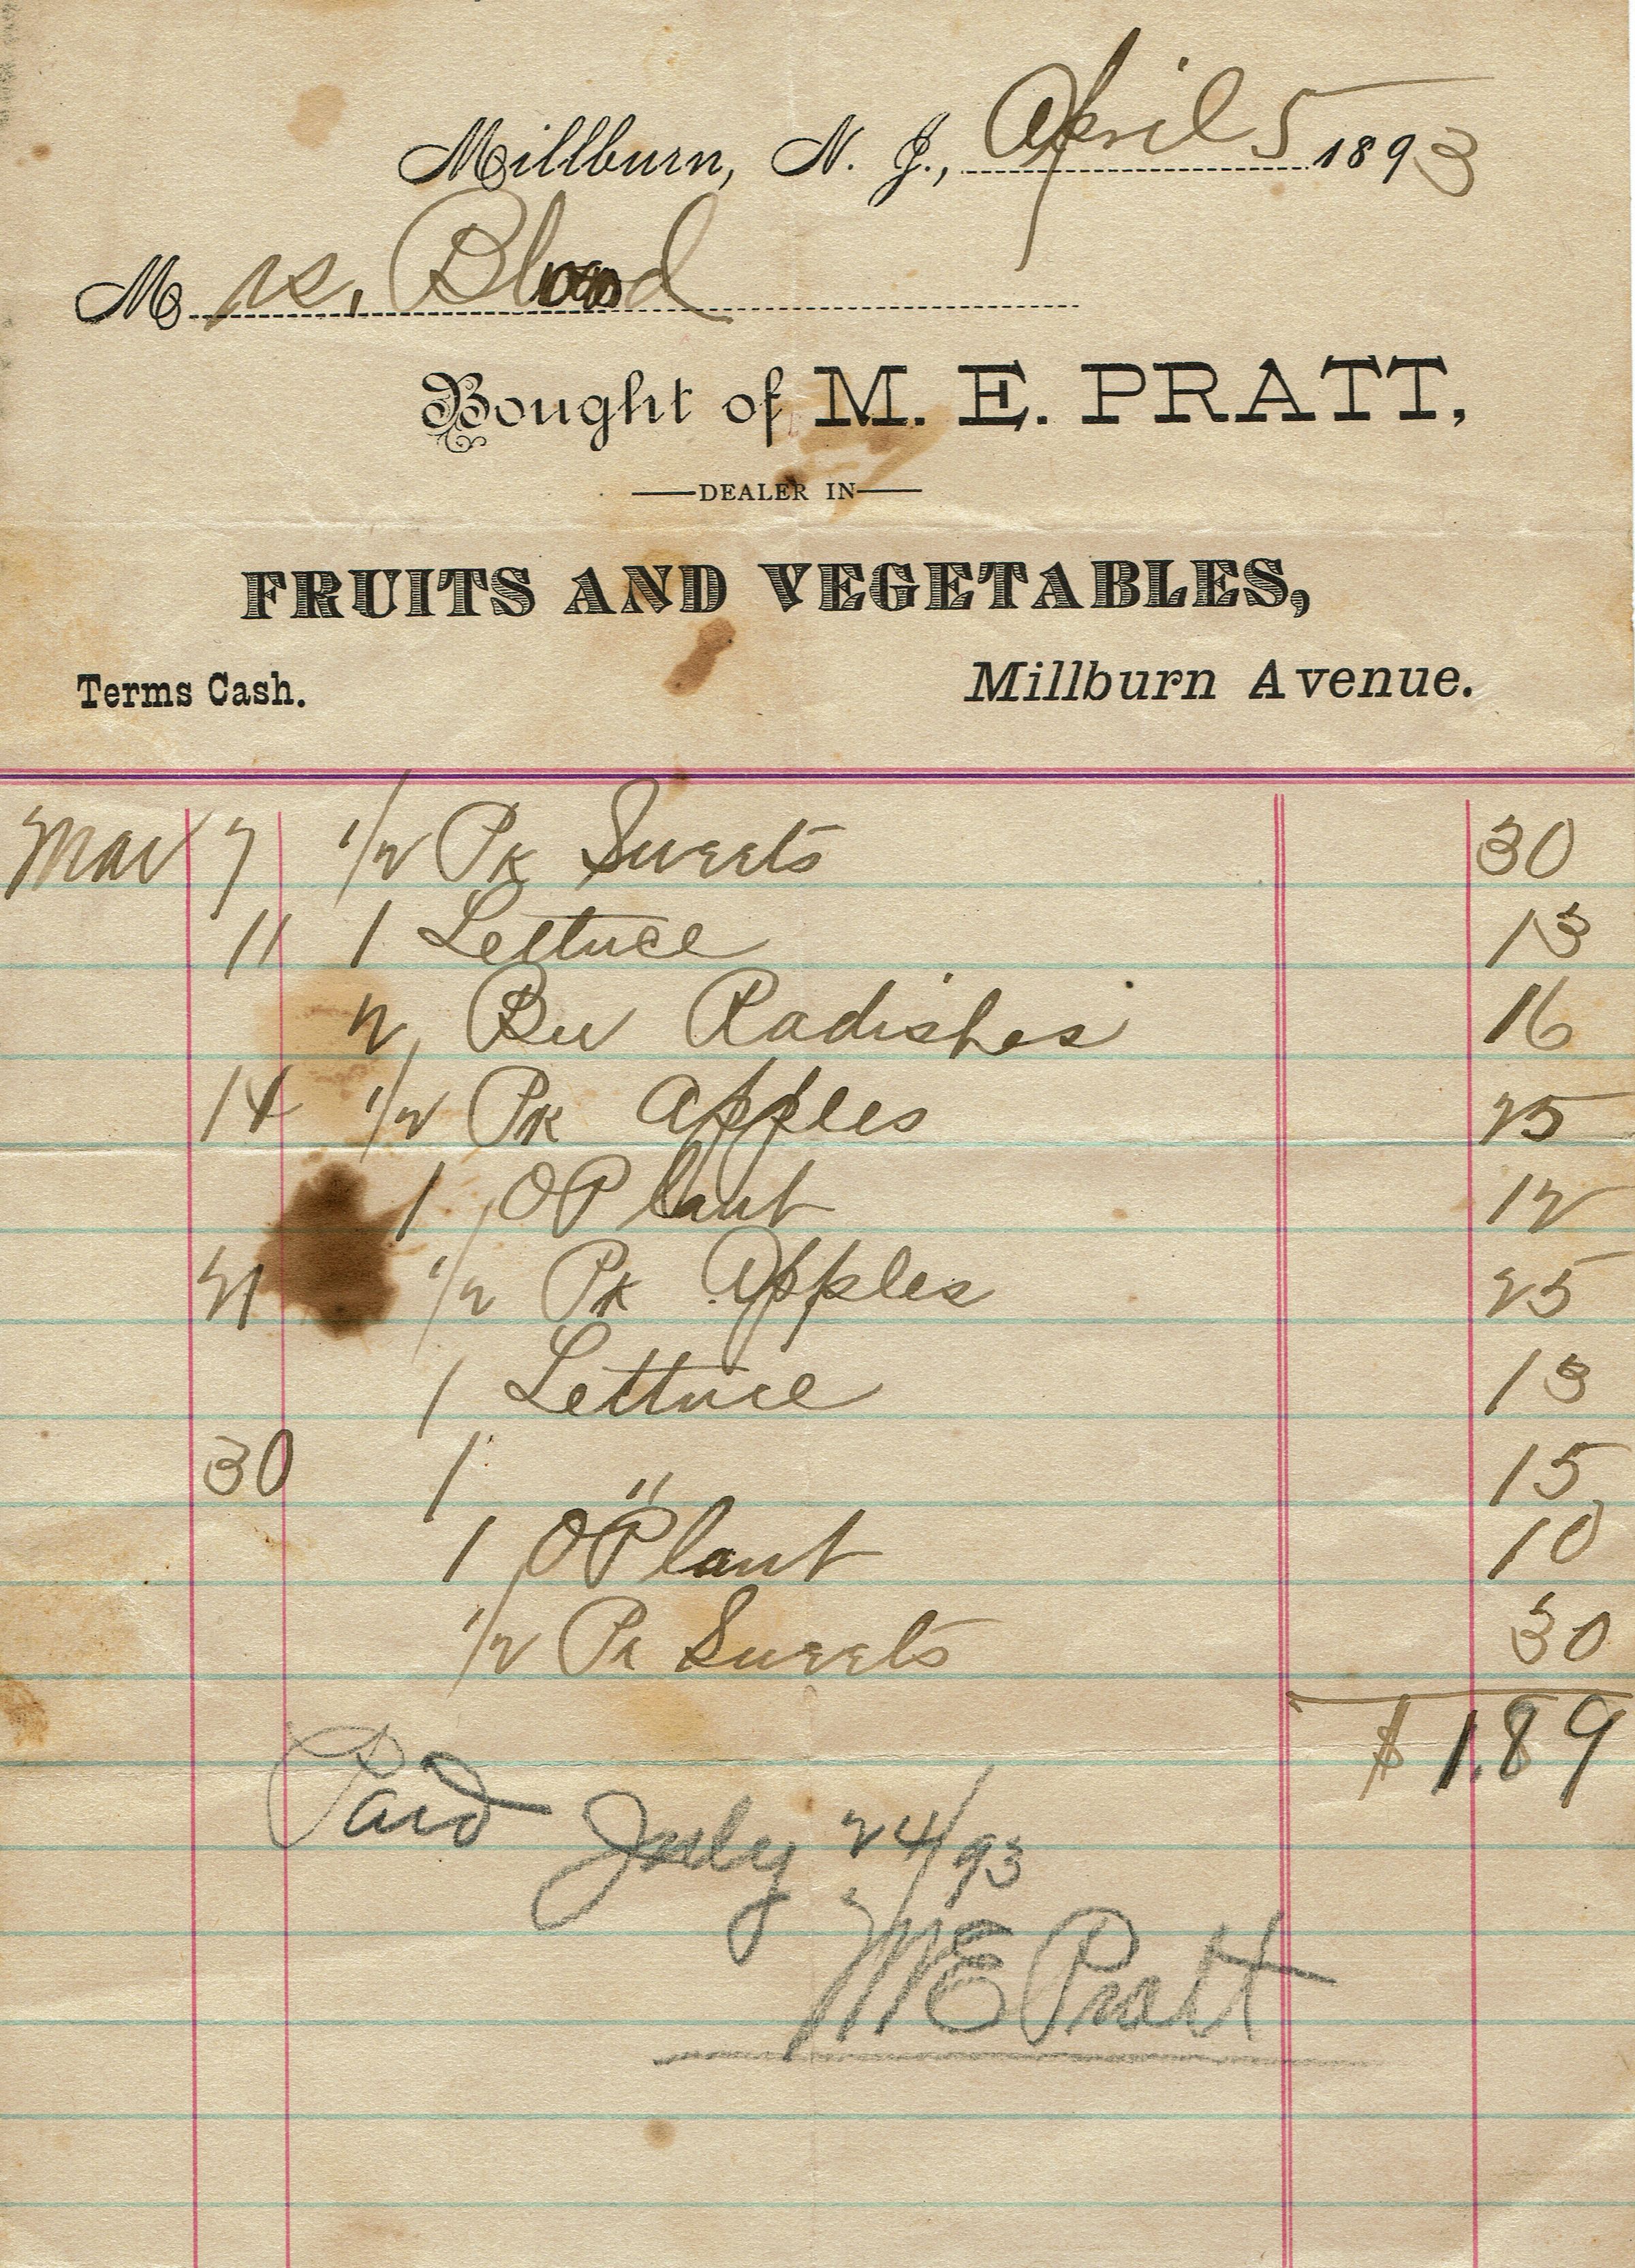 Millburn, N. J., April 5 1893
Mrs. Blood
Bought of M. E. PRATT,
DEALER IN
FRUITS AND VEGETABLES,
Terms Cash. Millburn Avenue.
Mar 7 1/2 Pk Sweets 30
11 1 Lettuce 13
2 Bu Radishes 16
14 1/2 Pk Apples 25
1 O Plant 12
21 1/2 Pk Apples 25
1 Lettuce 13
30 1 " 15
1 O Plant 10
1/2 Pk Sweets 30
$ 1.89
Paid July 24/93
M E Pratt